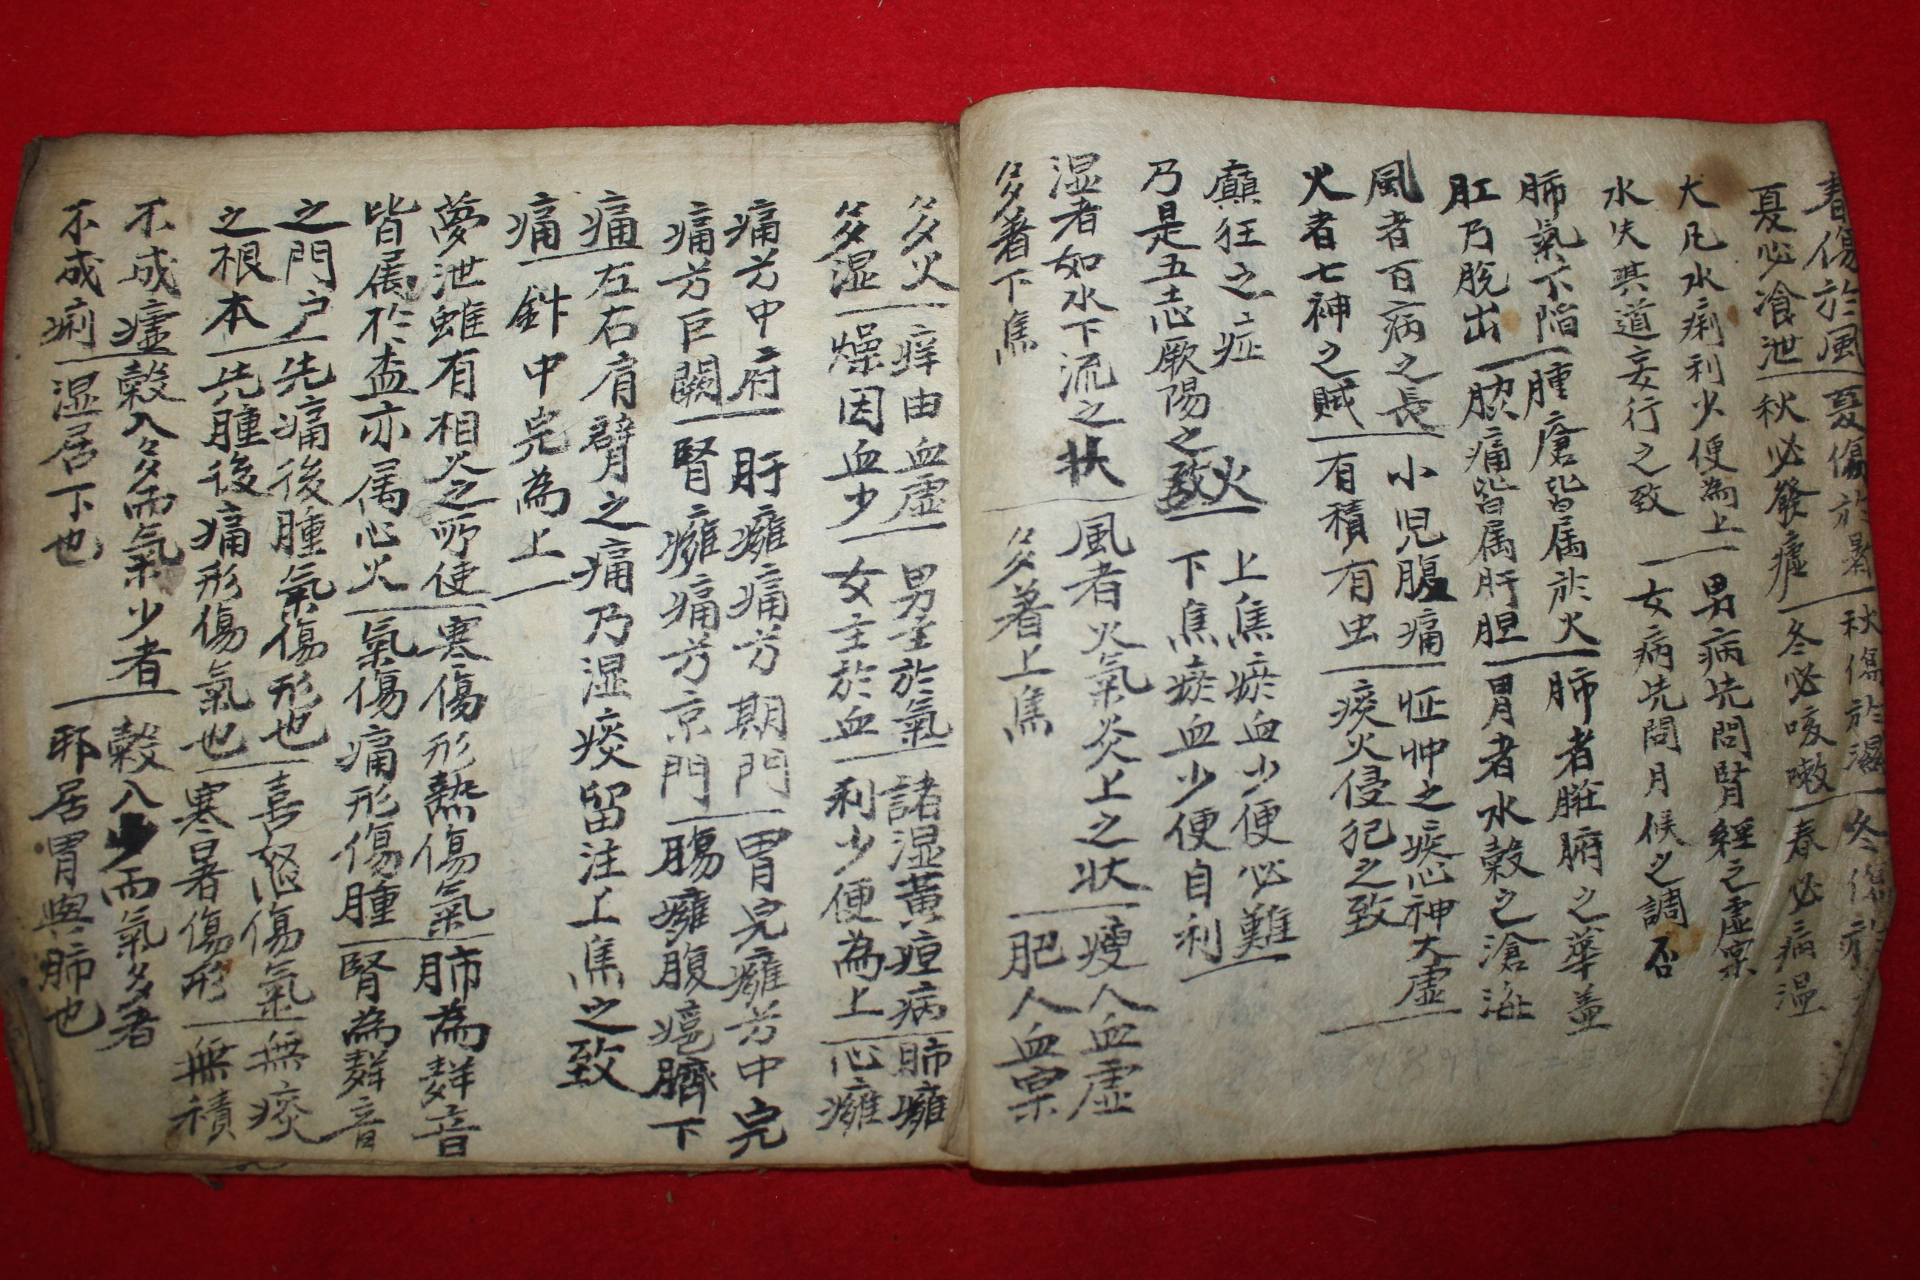 春傷於風 夏傷於暑 秋傷於濕 冬傷於
夏必飡泄 秋必發瘧 冬必咳嗽 春必病温
大凡水痢利少便為上 男病先問腎經之虛宲
水失其道妄行之致 女病先問月候之調否
肺氣下陷 腫瘡皆属於火 肺者脏腑之華盖
肛乃脫出 胁痛皆属肝胆 胃者水穀之滄海
風者百病之長 小児腹痛 怔忡之疾心神大虛
火者七神之賊 有積有虫 痰火侵犯之致
癲狂之症 火 上焦瘀血少便必難
乃是五志厥陽之致 下焦瘀血少便自利
湿者如水下流之状 風者火氣炎上之状 瘦人血虛
多着下焦 多著上焦 肥人血宲
多火 痒由血虛 男主於氣 諸湿黃疸病 肺癰
多湿 燥因血少 女主於血 利少便為上 心癰
痛芳中府 肝癰痛芳期門 胃完癰芳中完
痛芳巨闕 腎癰痛芳京門 腸癰腹疤臍下
痛左右肩臂之痛乃湿痰留注上焦之致
痛 針中完為上
夢泄雖有相火之所使 寒傷形熱傷氣 肺為聲音
皆属於盍亦属心火 氣傷痛形傷腫 腎為聲音
之門户 先痛後腫氣傷形也 喜怒傷氣 無痰
之根本 先腫後痛形傷氣也 寒暑傷形 無積
不成瘧 穀入多而氣少者 穀入少而氣多者
不成痢 湿居下也 邪居胃與肺也